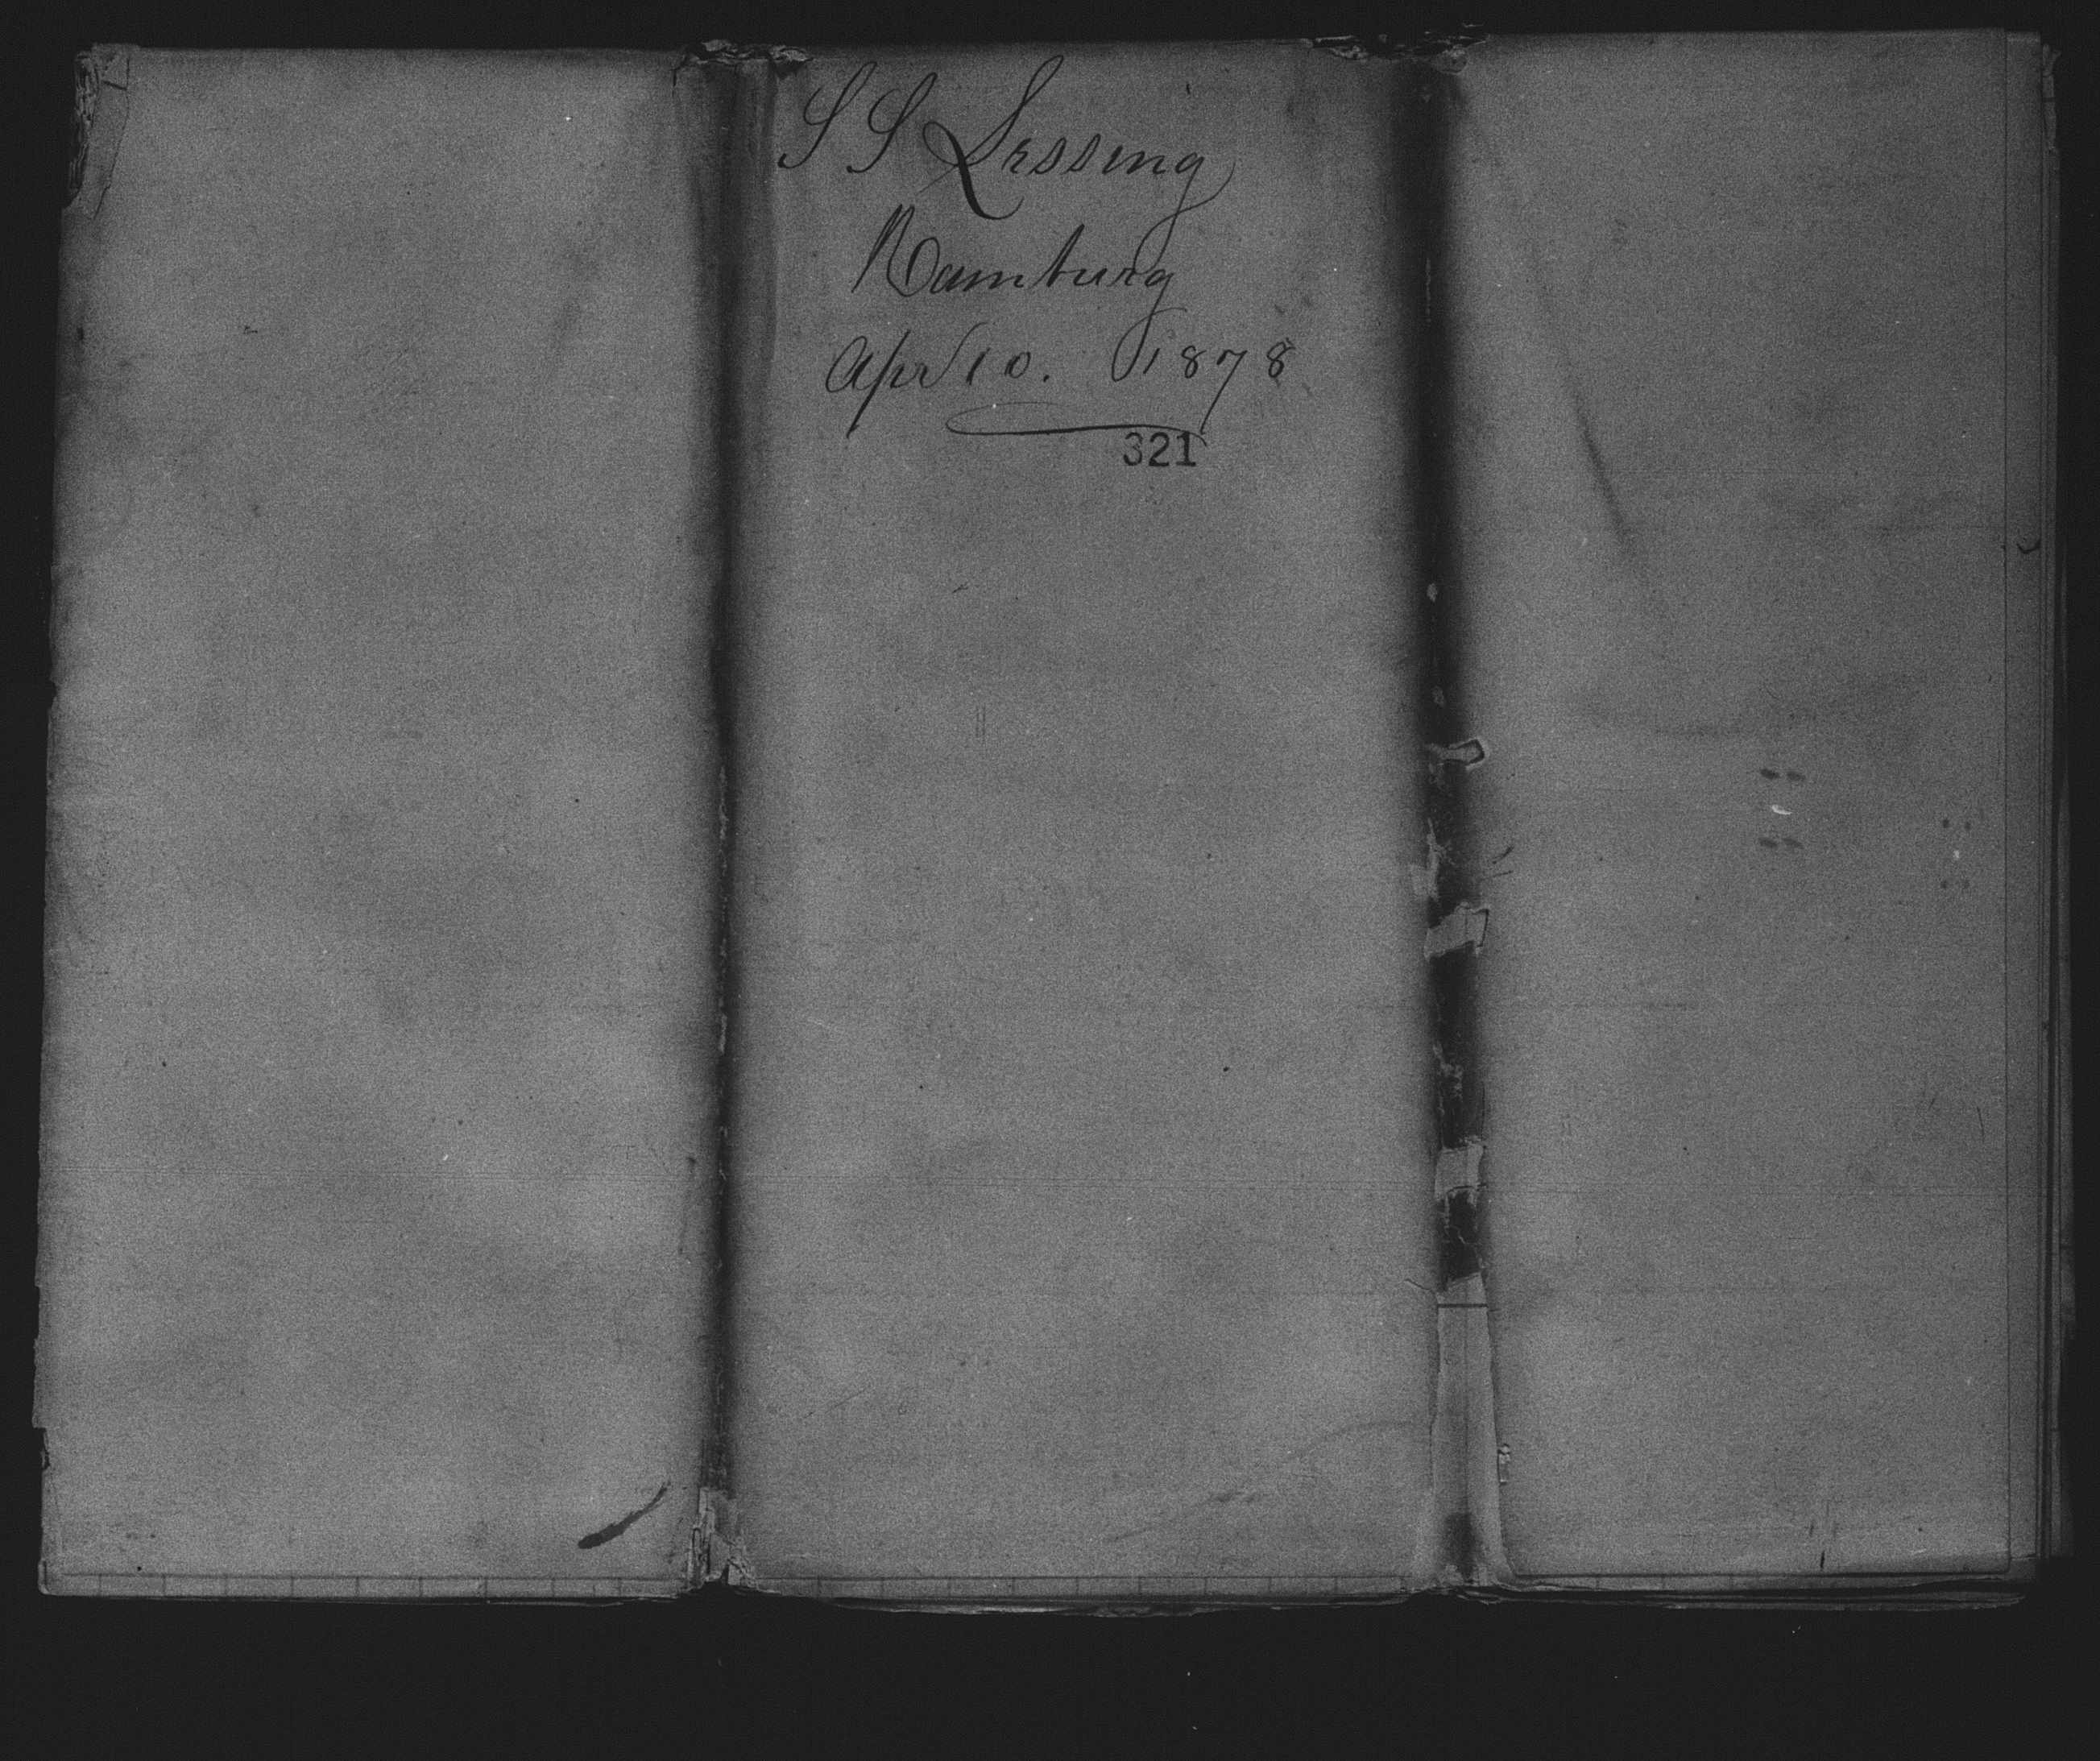 S S Lessing
Hamburg
Apr 10. 1878
321